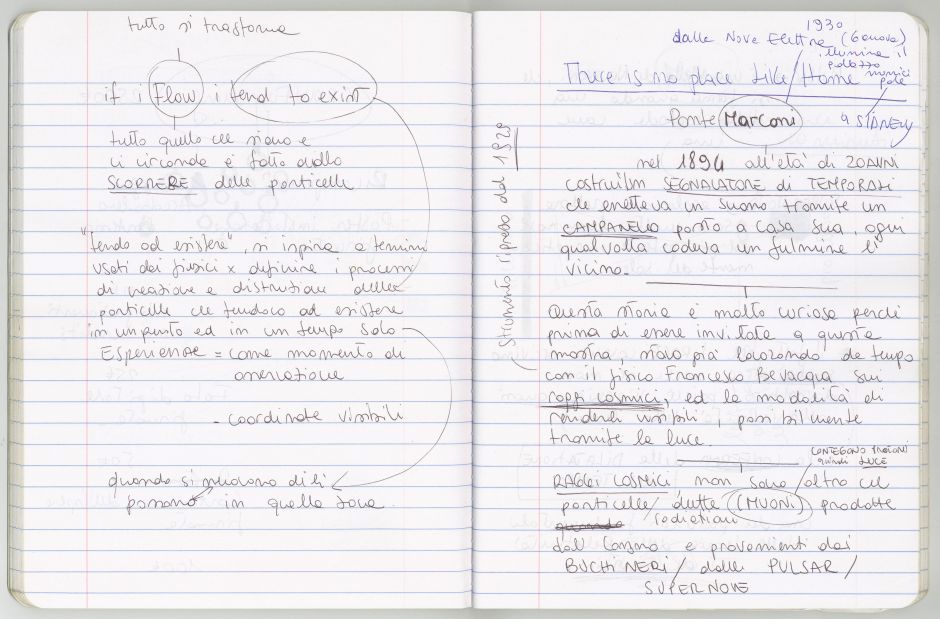 tutto si trasforma
if i Flow i tend to exist
tutto quello che siamo e
ci circonda è fatto dallo
SCORRERE delle particelle
"tendo ad esistere", si ispira a termini
usati dai fisici x definire i processi
di creazione e distruzione delle
particelle che tendono ad esistere
in un punto ed in un tempo solo
ESPERIENZE = come momento di
osservazione
- coordinate visibili
quando si muovono di lì
possano in quella zona
1930
dalla Nave Elettra (Genova)
illumina il
palazzo
There is no place Like / Home
a SIDNEY
Ponte Marconi
nel 1894 all'età di 20 ANNI
costruì un SEGNALATORE di TEMPORALI
che emetteva un suono tramite un
CAMPANELLO posto a casa sua, ogni
qual volta cadeva un fulmine lì
vicino.
Strumento ripreso dal 1828
Questa storia è molto curiosa perché
prima di essere invitata a questa
mostra, stavo già lavorando da tempo
con il fisico Francesco Bevacqua sui
raggi cosmici, ed la modalità di
renderli visibili, possibilmente
tramite la luce.
CONTEGONO FOTONI
quindi LUCE
RAGGI COSMICI non sono / altro che
particelle / dette (MUONI) prodotte
quando / radiazioni
dal Cosmo e provenienti dai
BUCHI NERI / dalle PULSAR /
SUPERNOVE